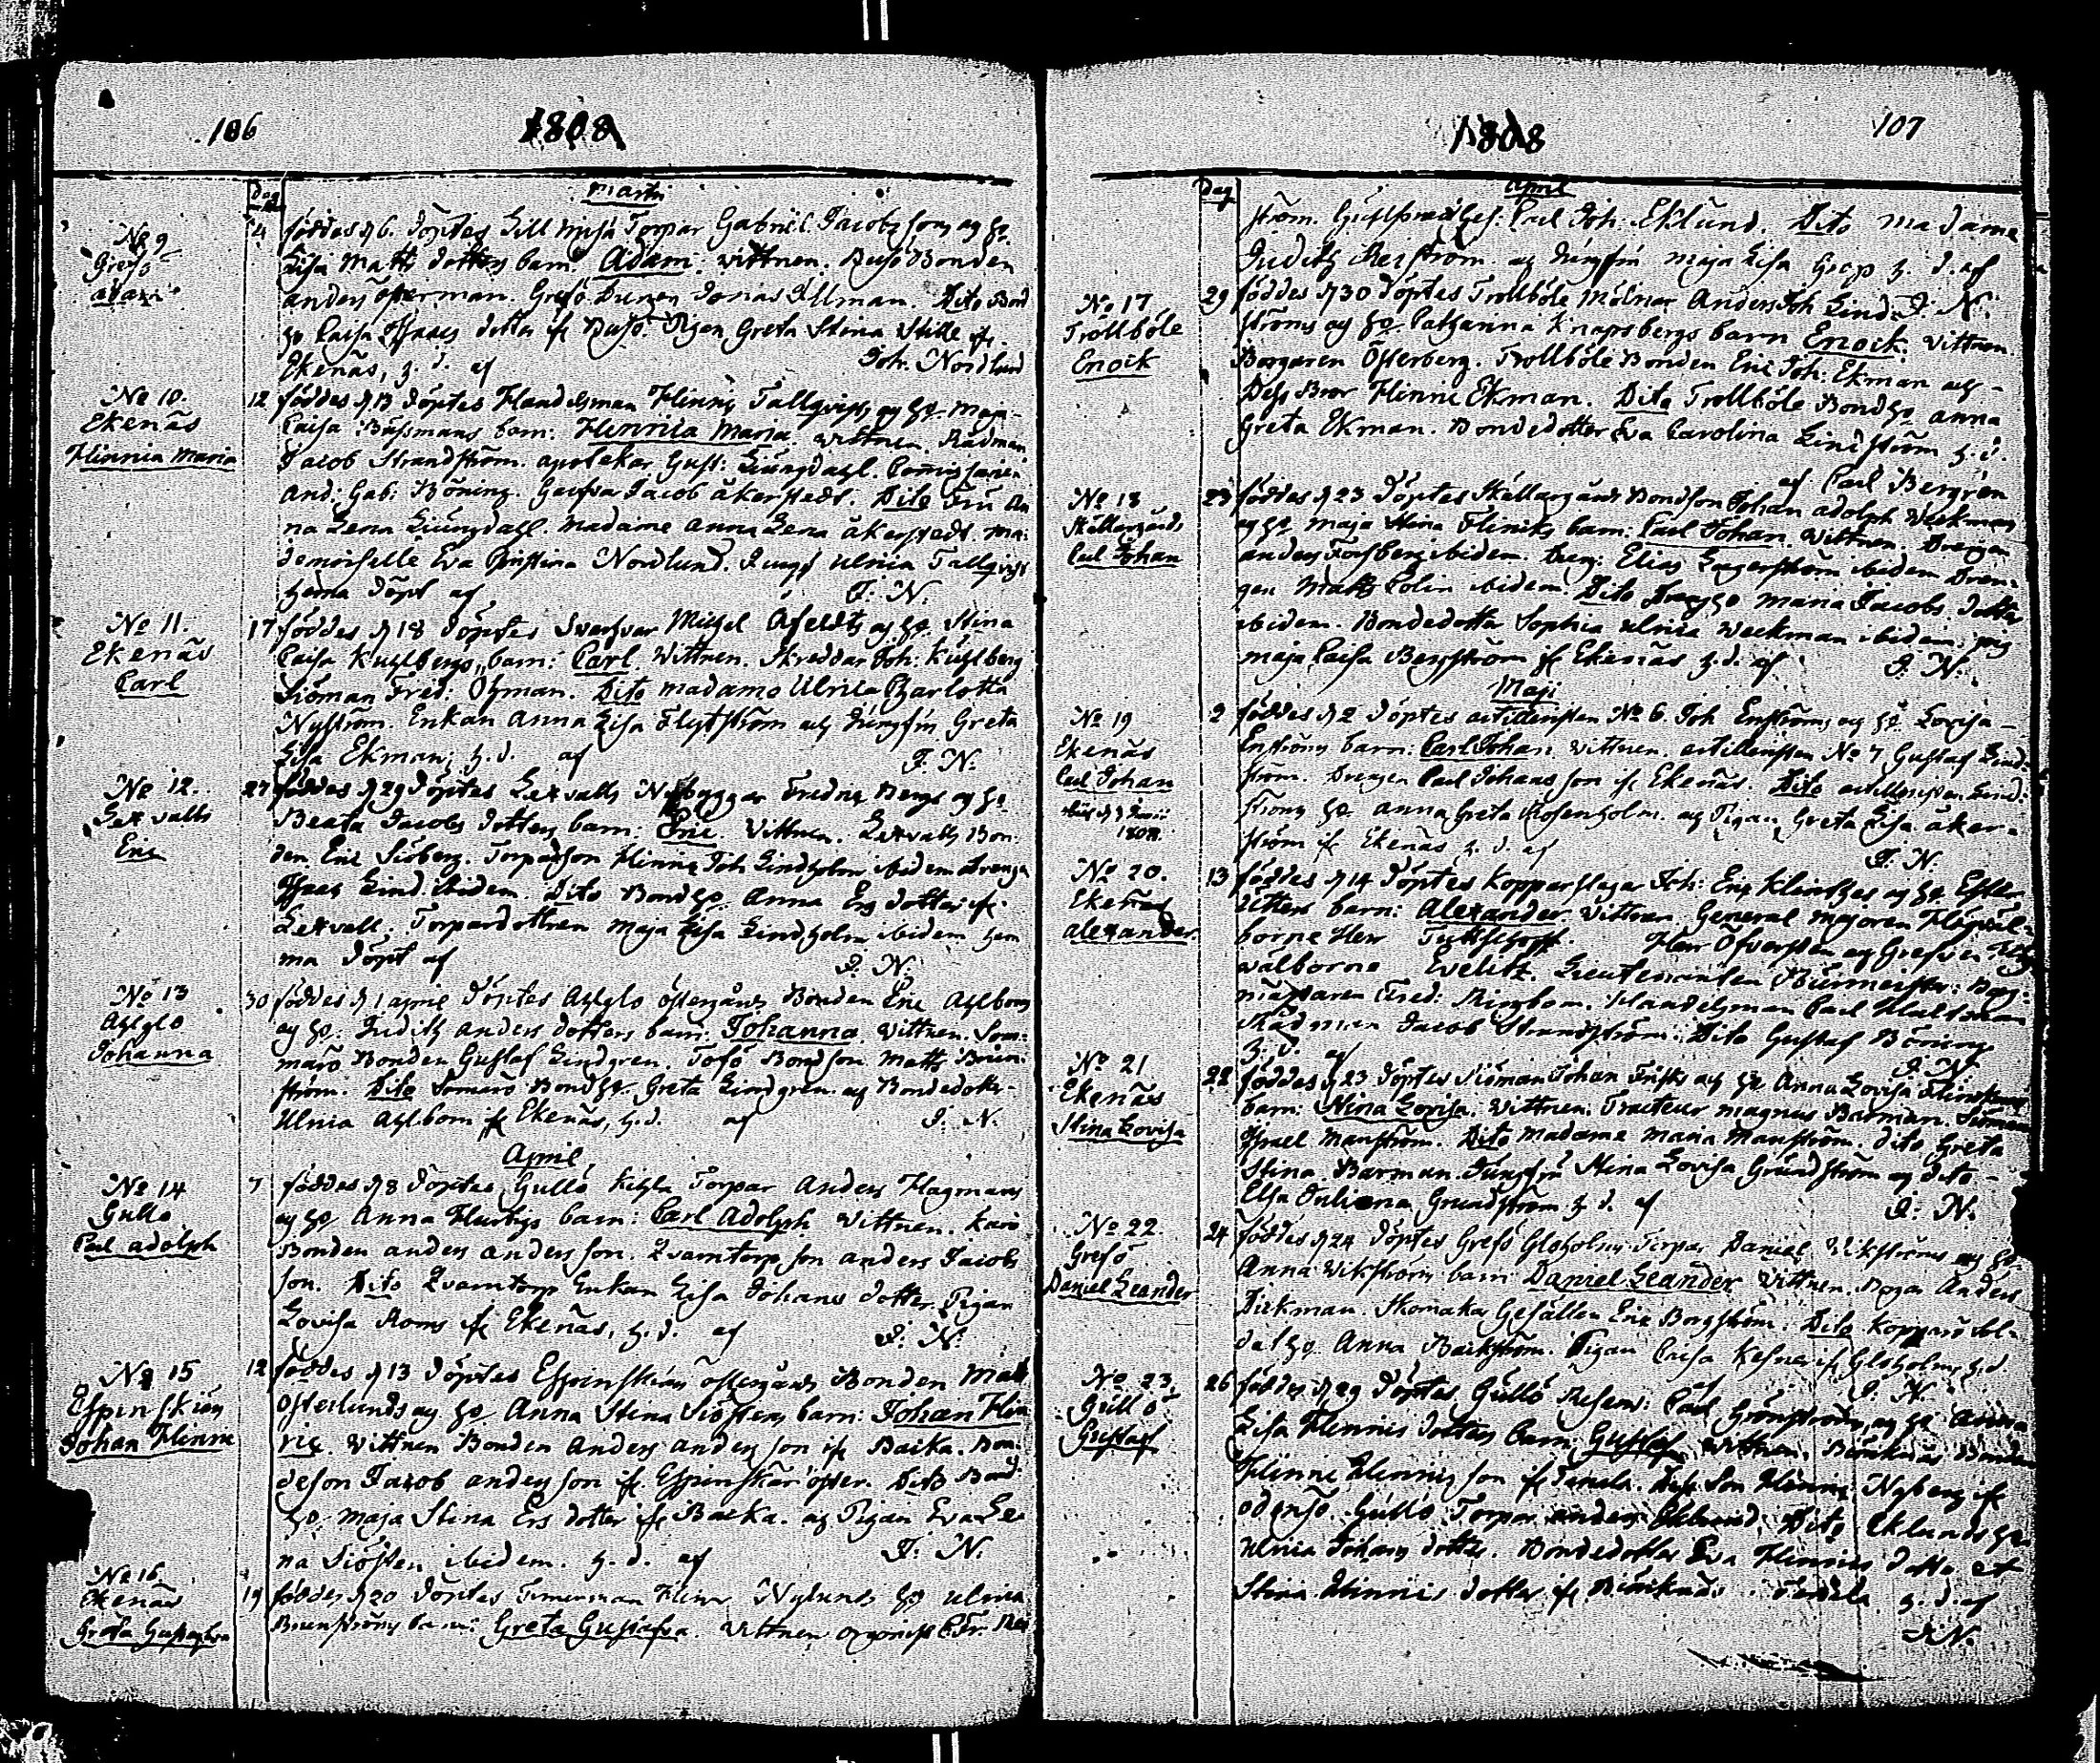 106
1808
Dag
Martii
No 9
Grefö
Adam
4 föddes d 6. Döptes Gillmisa Torpar Gabriel Jacobssons ag h:o
Lisa Matts dotters barn: Adam. Wittnen. Busö Bonden
anders österman. Grefö Drengen Jonas Illman. Dito Bond
ho Caisa Isaacs dotter if Busö. Pigan Greta Stina Stille if
Ekenäs, h. d. af Joh. Nordlund
No 10.
Ekenäs
Hinnia Maria
12 föddes d 13 döptes Handelsman Hinric Tallqvists ag ho Maja
Caisa Bussmans barn: Henrica Maria. Wittnen. Rådman
Jacob Strandström. apotekar Gust: Liungdahl.
And: Gab: Böning. Garfvar Jacob åkerstedt. Dito Fru An
na Lena Liungdahl. Madame Anna Lena åkerstedt. Ma:
demoiselle Eva Christina Nordlund. Jungf Ulrica Tallqvist
hema döpt af J. N.
No 11.
Ekenäs
Carl
17 föddes d 18 döptes Svarfvar Michel Afeldts ag ho Stina
Caisa Kuhlbergs barn: Carl. Wittnen. Skreddar Joh: Kuhlberg
Siöman Fred: Öhman. Dito madame Ulrica Charlotta
Nyström. Enkan Anna Lisa Flytström ag Jungfru Greta
Lisa Ekman, h. d. af J. N.
No 12.
Lexvall
Eric
27 föddes d 29 döptes Lexvalls Nybyggar Fredric Bergs ag ho
Beata Jacobs dotters barn: Eric. Wittnen. Lexvalls Bon:
den Eric Siöberg. Torparson Hinric Joh Lindholm ibidem drenge
Isaac Lind ibidem. Dito Bondho Anna Ers dotter if
Lexvall. Torpardottren Maja Lisa Lindholm ibidem hem
ma döpt af J. N.
No 13
Ahlglo
Johanna
30 föddes d 1 april döptes Ahlglo östergårds Bonden Eric Ahlboms
ag ho Judith anders dotters barn: Johanna. Wittnen. Som:
marö Bonden Gustaf Lindgren. Tofö Bondson Matts Brun:
ström. Dito Somarö Bondho Greta Lindgren ag Bondedotter
Ulrica Ahlbom if Ekenäs, h. d. af J. N.
April
No 14
Gullö
Carl adolph
7 föddes d 8 döptes Gullö Kihla Torpar Anders Hagmans
ag ho Anna Hurtigs barn: Carl Adolph. Wittnen.
Bonden anders andersson. Qvarntorp son anders Jacobs
son. Dito Qvarntorp Enkan Lisa Johans dotter Pigan
Lovisa Roms if Ekenäs, h. d. af J. N.
No 15
Espinskiär
Johan Hinric
12 föddes d 13 döptes Espinskiär östergårds Bonden Matts
Österlunds ag ho Anna Stina Siöstens barn: Johan Hin
ric. Wittnen Bonden Anders andersson if Backa. Bon:
deson Jacob andersson if Espinskär öster. Dito Bond:
ho Maja Stina Ers dotter if Backa. ag Pigan Eva Le
na Siösten ibidem. h. d. af J. N.
No 16
Ekenäs
Greta Gustafva
19 föddes d 20 döptes Timerman Hinr Nylunds ho Ulrica
Brunströms barn: Greta Gustafva. Wittnen organist C. Fr. Rei
1808
107
Dag
April
ström. Gulsmeds Ges: Carl Joh. Eklund. Dito madame
Judith Reiström. ag Jungfru Maja Lisa h. d. af
J. N.
No 17
Trollböle
Enock
29 föddes d 30 döptes Trollböle Mölnar Anders Joh Lind
ströms ag ho Catharina Knapsbergs barn Enock. Wittnen.
Borgaren Österberg. Trollböle Bonden Eric Joh: Ekman ag
Dess Bror Hinric Ekman. Dito Trollböle Bondho anna
Greta Ekman. Bondedotter Eva Carolina Lindström h. d.
af Carl Bergren
No 18
Carl Johan
23 föddes d 23 döptes Bondson Johan adolph Weckmans
ag ho Maja Stina Flincks barn: Carl Johan. Wittnen. Drengen
anders Forsberg ibidem. Dreng: Elias Lagerström ibidem Dren:
gen Matts Polin ibidem. Dito Dreng ho Maria Jacobs dotter
ibidem. Bondedotter Sophia Ulrica Weckman ibidem. pig
Maja Caisa Bergström if Ekenäs h. d. af J. N.
Maji
No 19
Ekenäs
Carl Johan
1808
2 föddes d 2 döptes artilleristen No 6. Joh Enströms ag ho Lovisa
Enströms barn: Carl Johan. Wittnen. artilleristen No 7 Gustaf Lind:
ström. Drengen Carl Johansson if Ekenäs. Dito artilleristen Lind:
ströms ho anna Greta Rosenholm. ag Pigan Greta Lisa åker:
ström if Ekenäs h. d. af J. N.
No 20.
Ekenäs
Alexander
13 föddes d 14 döptes Kopparslagar Joh: Eric Klintzes ag ho
barn: Alexander. Wittnen. General Majoren Högväl:
borne Herr Herr Öfversten ag Grefven Hög
välborne Lieutenanten Burmeister: Borg:
mästaren Fred: Mimbom. Handelsman Carl Hultman
Rådman Jacob Strandström. Dito Gustaf Böning
h. d. af J. N.
No 21
Ekenäs
Stina Lovisa
22 föddes d 23 döptes Siöman Johan Frisks ag ho Anna Lovisa
barn: Stina Lovisa. Wittnen. Tracteur Magnus Barman. Siöman
Israel Manström. Dito Madame Maria Manström. Dito Greta
Stina Barman. Jungfru Stina Lovisa Grundström ag dito
Elsa Juliana Grundström h. d. af J. N.
No 22.
Grefö
Daniel Leander
24 föddes d 24 döptes Grefö Gloholms Torpar Daniel Wikströms ag ho
Anna Wikströms barn Daniel Leander. Wittnen. Anders
Dickman. Skomakar Gesällen Eric Borgström. Dito Kopparö Sol:
dat ho Anna Backström. Pigan Caisa if Gloholms h. d.
af J. N.
No 23
Gullö
Gustaf
26 föddes d 29 döptes Gullö Reserv: Carl Grönströms ag ho Anna
Lisa Hinrics dotters barn Gustaf. Wittnen. Bonden
Hinric Hinricsson if Tenala. Dess Son Hinric Nyberg if
odensö. Gullö Torpar anders Eklund. Dito Eklunds ho
Ulrica Johans dotter. Bondedotter Eva Hinrics dotter et
Stina Hinrics dotter if Tenala h. d. af
J. N.